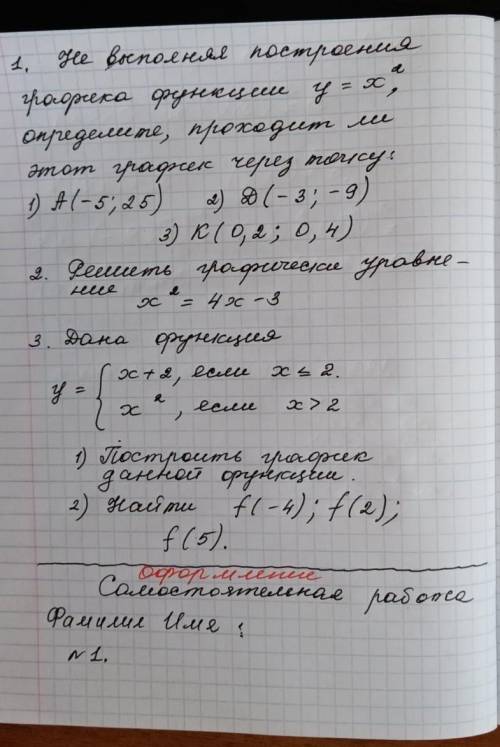 1. Не выполняя построения
графика функции y = x²,
определите, проходит ли
этот график через точку:
1) A(-5; 25) 2) D(-3; -9)
3) K(0,2; 0,4)
2. Решить графически уравне-
ние x² = 4x - 3
3. Дана функция
y = { x + 2, если x ≤ 2.
x², если x > 2
1) Построить график
данной функции.
2) Найти f(-4); f(2);
f(5).
Оформление
Самостоятельная работа
Фамилия Имя :
№1.